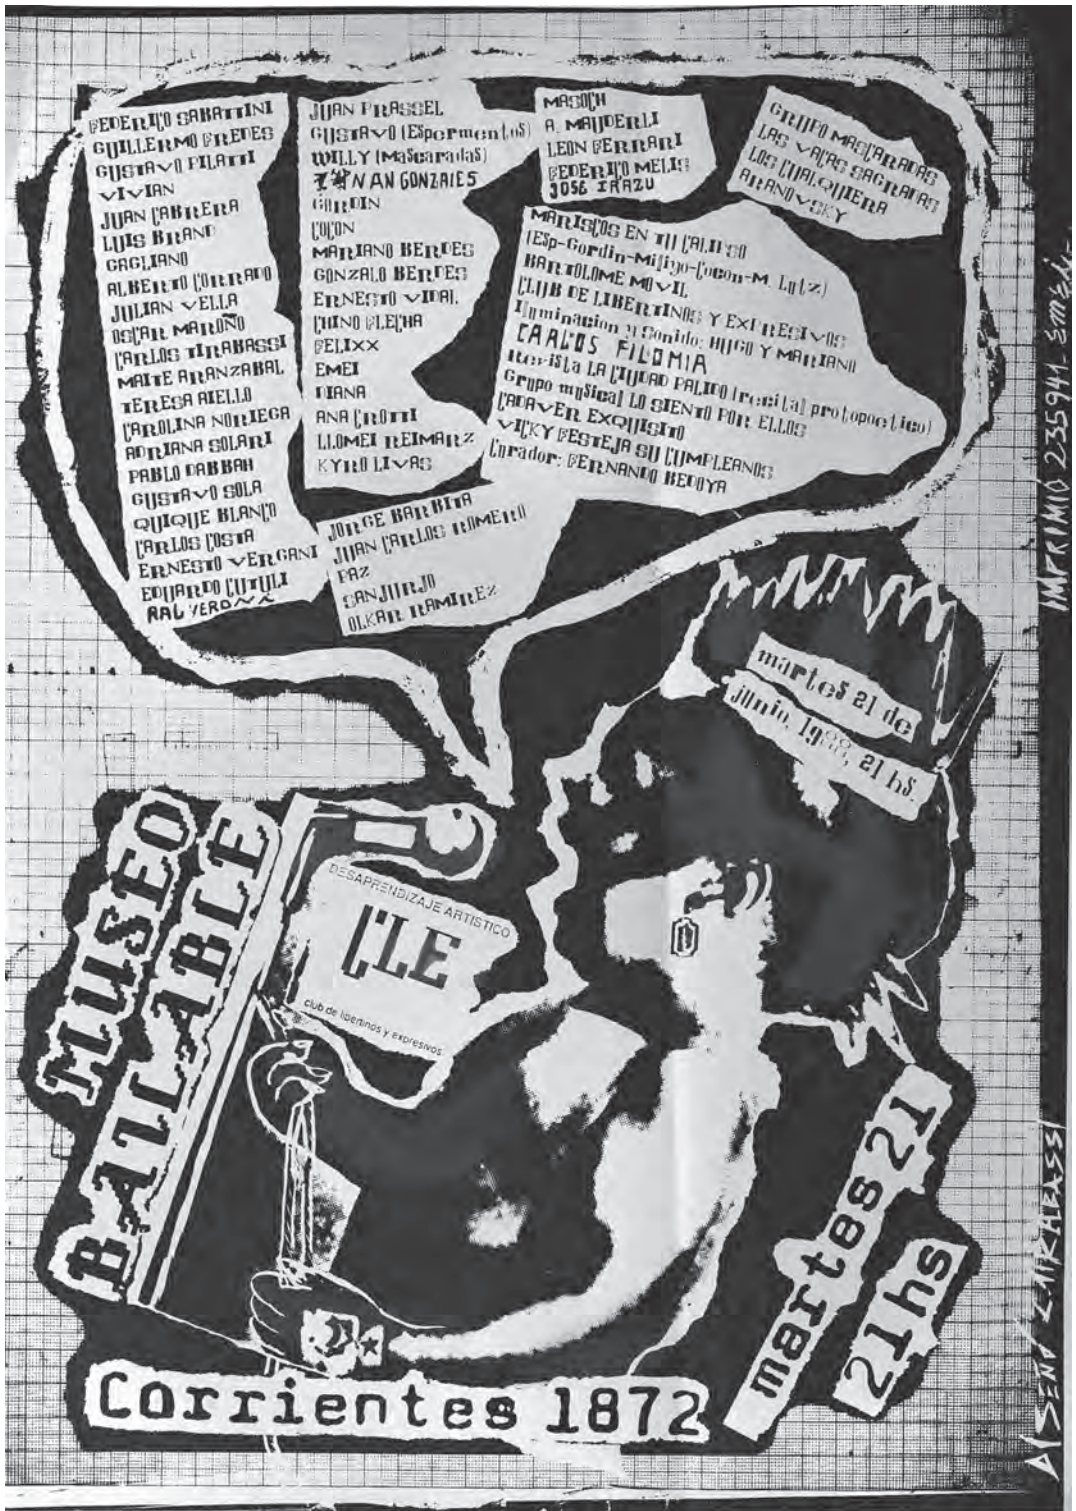 FEDERICO SABATTINI
GUILLERMO FREDES
GUSTAVO PILATTI
VIVIAN
JUAN CABRERA
LUIS BRAND
GAGLIANO
ALBERTO CORRADO
JULIAN VELLA
OSCAR MAROÑO
CARLOS TIRABASSI
MAITE ARANZABAL
TERESA AIELLO
CAROLINA NORIEGA
ADRIANA SOLARI
PABLO DABBAH
GUSTAVO SOLA
QUIQUE BLANCO
CARLOS COSTA
ERNESTO VERGANI
EDUARDO CUTULI
JUAN PRASSEL
GUSTAVO (ESpermentoS)
WILLY (MaScaradaS)
GONZALES
GORDIN
COCON
MARIANO BERDES
GONZALO BERDES
ERNESTO VIDAL
CHINO FLECHA
FELIXX
EMEI
DIANA
ANA CROTTI
LLOMEI REIMARZ
KYRO LIVAS
JORGE BARBITA
JUAN CARLOS ROMERO
PAZ
SANJURJO
OLKAR RAMIREZ
MASOCH
A. MAUDERLI
LEON FERRARI
FEDERICO MELIS
JOSE IRAZU
GRUPO MASCARADAS
LAS VACAS SAGRADAS
LOS CUALQUIERA
ARANOVSKY
MARISCOS EN TU CALIPSO
(ESp-Gordin-Miliyo-Cocon-M. Lutz)
BARTOLOME MOVIL
CLUB DE LIBERTINOS Y EXPRESIVOS
Iluminacion y Sonido: HUGO Y MARIANO
CARLOS FILOMIA
ReviSta LA CIUDAD PALIDO (recital protopoetico)
Grupo muSical LO SIENTO POR ELLOS
CADAVER EXQUISITO
VICKY FESTEJA SU CUMPLEANOS
Curador: FERNANDO BEDOYA
marteS 21 de
junio, 1988, 21 hS.
MUSEO
BAILABLE
DESAPRENDIZAJE ARTISTICO
CLE
club de libertinos y expresivos
martes 21
21hs
Corrientes 1872
IMPRIMIÓ 235941